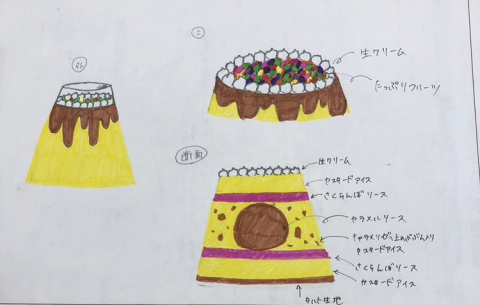 上
生クリーム
たっぷりフルーツ
断面
生クリーム
カスタードアイス
さくらんぼソース
カラメルソース
カスタードアイス
さくらんぼソース
カスタードアイス
タルト生地